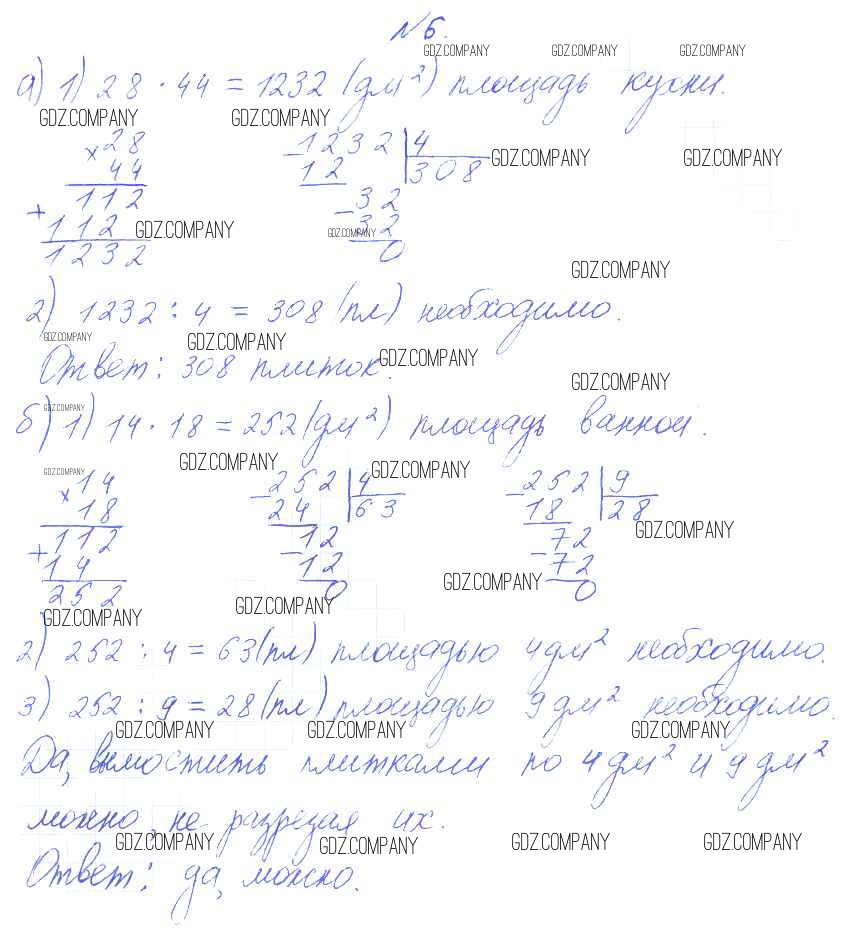 №6.
GDZ.COMPANY GDZ.COMPANY GDZ.COMPANY
а) 1) 28 · 44 = 1232 (дм²) площадь кухни.
GDZ.COMPANY GDZ.COMPANY
× 28
44
112
+ 112
1232
- 1232 | 4
12 308
- 32
32
0
GDZ.COMPANY GDZ.COMPANY
GDZ.COMPANY GDZ.COMPANY
GDZ.COMPANY
2) 1232 : 4 = 308 (пл) необходимо.
GDZ.COMPANY GDZ.COMPANY GDZ.COMPANY
Ответ: 308 плиток.
GDZ.COMPANY
GDZ.COMPANY
б) 1) 14 · 18 = 252 (дм²) площадь ванной.
GDZ.COMPANY GDZ.COMPANY GDZ.COMPANY
× 14
18
112
+ 14
252
- 252 | 4
24 63
- 12
12
0
- 252 | 9
18 28
- 72
72
0
GDZ.COMPANY
GDZ.COMPANY
GDZ.COMPANY GDZ.COMPANY
2) 252 : 4 = 63 (пл) площадью 4 дм² необходимо.
3) 252 : 9 = 28 (пл) площадью 9 дм² необходимо.
GDZ.COMPANY GDZ.COMPANY GDZ.COMPANY
Да, вымостить плитками по 4 дм² и 9 дм²
можно, не разрезая их.
GDZ.COMPANY GDZ.COMPANY GDZ.COMPANY GDZ.COMPANY
Ответ: да, можно.